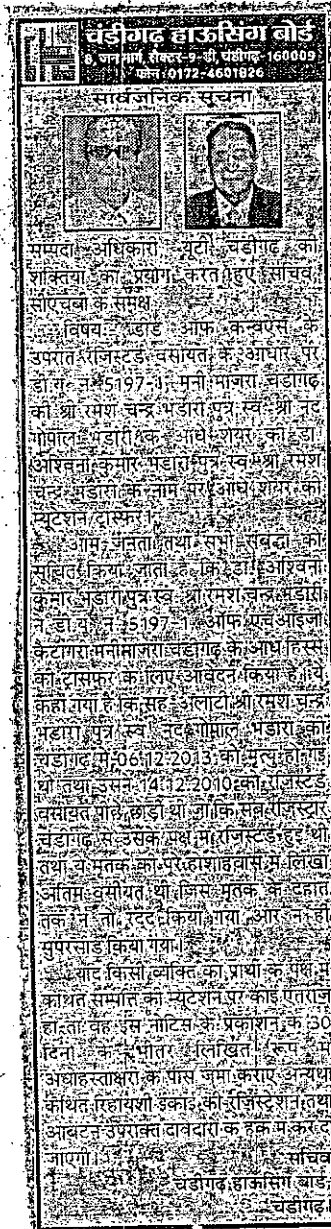 चंडीगढ़ हाऊसिंग बोर्ड
8, जन मार्ग, सैक्टर-9-डी, चंडीगढ़-160009
फोन : 0172-4601826
सार्वजनिक सूचना
सम्पदा अधिकारी यूटी चंडीगढ़ की
शक्तियों का प्रयोग करते हुए सचिव,
सीएचबी के समक्ष
विषय: डीड ऑफ कन्वेएंस के
उपरांत रजिस्टर्ड वसीयत के आधार पर
डी.यू. नं. 5197-1, मनीमाजरा चंडीगढ़
की श्री रमेश चन्द्र भंडारी पुत्र स्व. श्री नंद
गोपाल भंडारी के आधे शेयर की डा.
अश्विनी कुमार भंडारी पुत्र स्व. श्री रमेश
चन्द्र भंडारी के नाम पर आधे शेयर की
म्यूटेशन ट्रांस्फर।
आम जनता तथा सभी संबद्धों को
सूचित किया जाता है कि डा. अश्विनी
कुमार भंडारी पुत्र स्व. श्री रमेश चन्द्र भंडारी
ने डी.यू. नं. 5197-1, ऑफ एचआईजी
कैटागरी मनीमाजरा चंडीगढ़ के आधे हिस्से
की ट्रांसफर के लिए आवेदन किया है। ये
कहा गया है कि सह-अलाटी श्री रमेश चन्द्र
भंडारी पुत्र स्व. नंद गोपाल भंडारी की
चंडीगढ़ में 06.12.2013 को मृत्यु हो गई
थी तथा उसने 14.12.2010 को रजिस्टर्ड
वसीयत पीछे छोड़ी थी जोकि सब रजिस्ट्रार
चंडीगढ़ से उसके पक्ष में रजिस्टर्ड हुई थी
तथा ये मृतक की पूरे होशोहवास में लिखी
अंतिम वसीयत थी जिसे मृतक के देहांत
तक न तो रद्द किया गया और न ही
सुपरसीड किया गया।
यदि किसी व्यक्ति को प्रार्थी के पक्ष में
कथित सम्पत्ति की म्यूटेशन पर कोई एतराज
हो तो वह इस नोटिस के प्रकाशन के 30
दिनों के भीतर लिखित रूप में
अधोहस्ताक्षरी के पास जमा कराए अन्यथा
कथित रिहायशी इकाई की रजिस्ट्रेशन तथा
आबंटन उपरोक्त दावेदारों के हक में कर दी
जाएगी।
सचिव
चंडीगढ़ हाऊसिंग बोर्ड,
चंडीगढ़